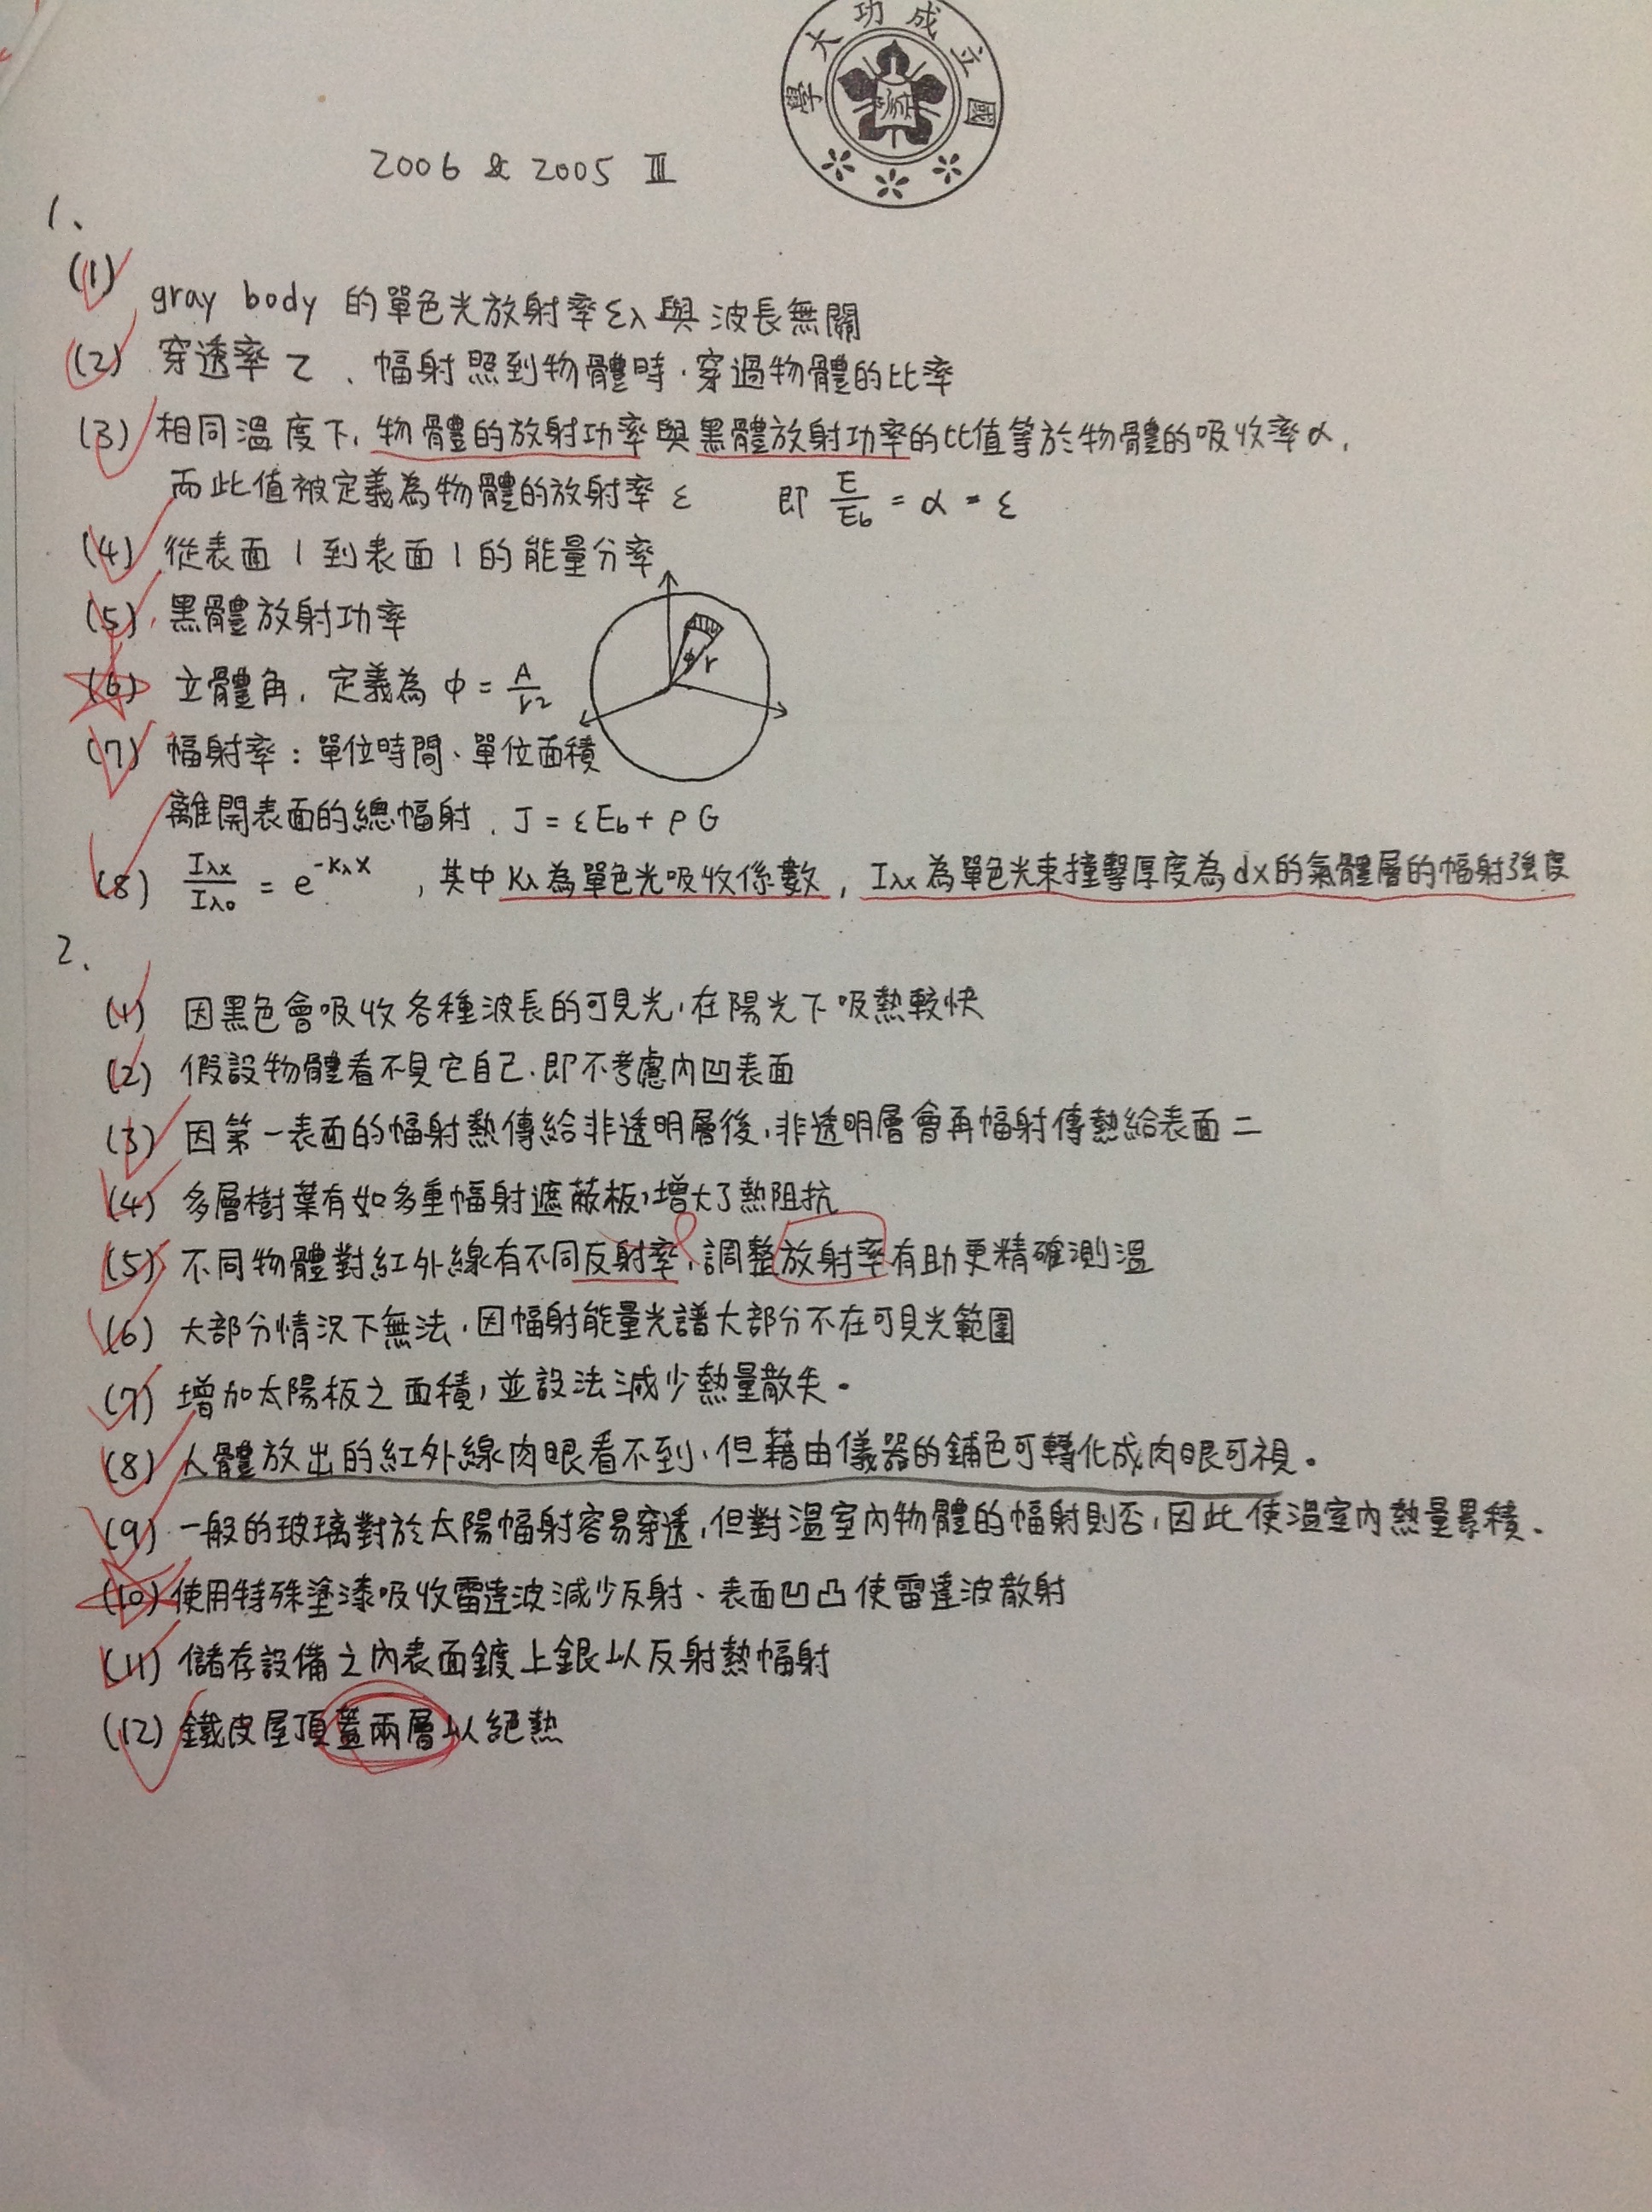 國立成功大學
2006 & 2005 Ⅲ
1、
(1) gray body 的單色光放射率 ελ 與波長無關
(2) 穿透率 τ、輻射照到物體時,穿過物體的比率
(3) 相同溫度下,物體的放射功率與黑體放射功率的比值等於物體的吸收率α,
而此值被定義為物體的放射率 ε 即 E/Eb = α = ε
(4) 從表面1到表面1的能量分率
(5) 黑體放射功率
(6) 立體角,定義為 φ = A/r2
φ r
(7) 幅射率:單位時間、單位面積
離開表面的總幅射,J = εEb + ρG
(8) Iλx/Iλo = e^-Kλx ,其中 Kλ 為單色光吸收係數,Iλx 為單色光束撞擊厚度為dx的氣體層的幅射強度
2、
(1) 因黑色會吸收各種波長的可見光,在陽光下吸熱較快
(2) 假設物體看不見它自己,即不考慮內凹表面
(3) 因第一表面的幅射熱傳給非透明層後,非透明層會再幅射傳熱給表面二
(4) 多層樹葉有如多重幅射遮蔽板,增大了熱阻抗
(5) 不同物體對紅外線有不同反射率,調整放射率有助更精確測溫
(6) 大部分情況下無法,因幅射能量光譜大部分不在可見光範圍
(7) 增加太陽板之面積,並設法減少熱量散失。
(8) 人體放出的紅外線肉眼看不到,但藉由儀器的鋪色可轉化成肉眼可視。
(9) 一般的玻璃對於太陽幅射容易穿透,但對溫室內物體的幅射則否,因此使溫室內熱量累積.
(10) 使用特殊塗漆吸收雷達波減少反射、表面凹凸使雷達波散射
(11) 儲存設備之內表面鍍上銀以反射熱幅射
(12) 鐵皮屋頂蓋兩層以絕熱